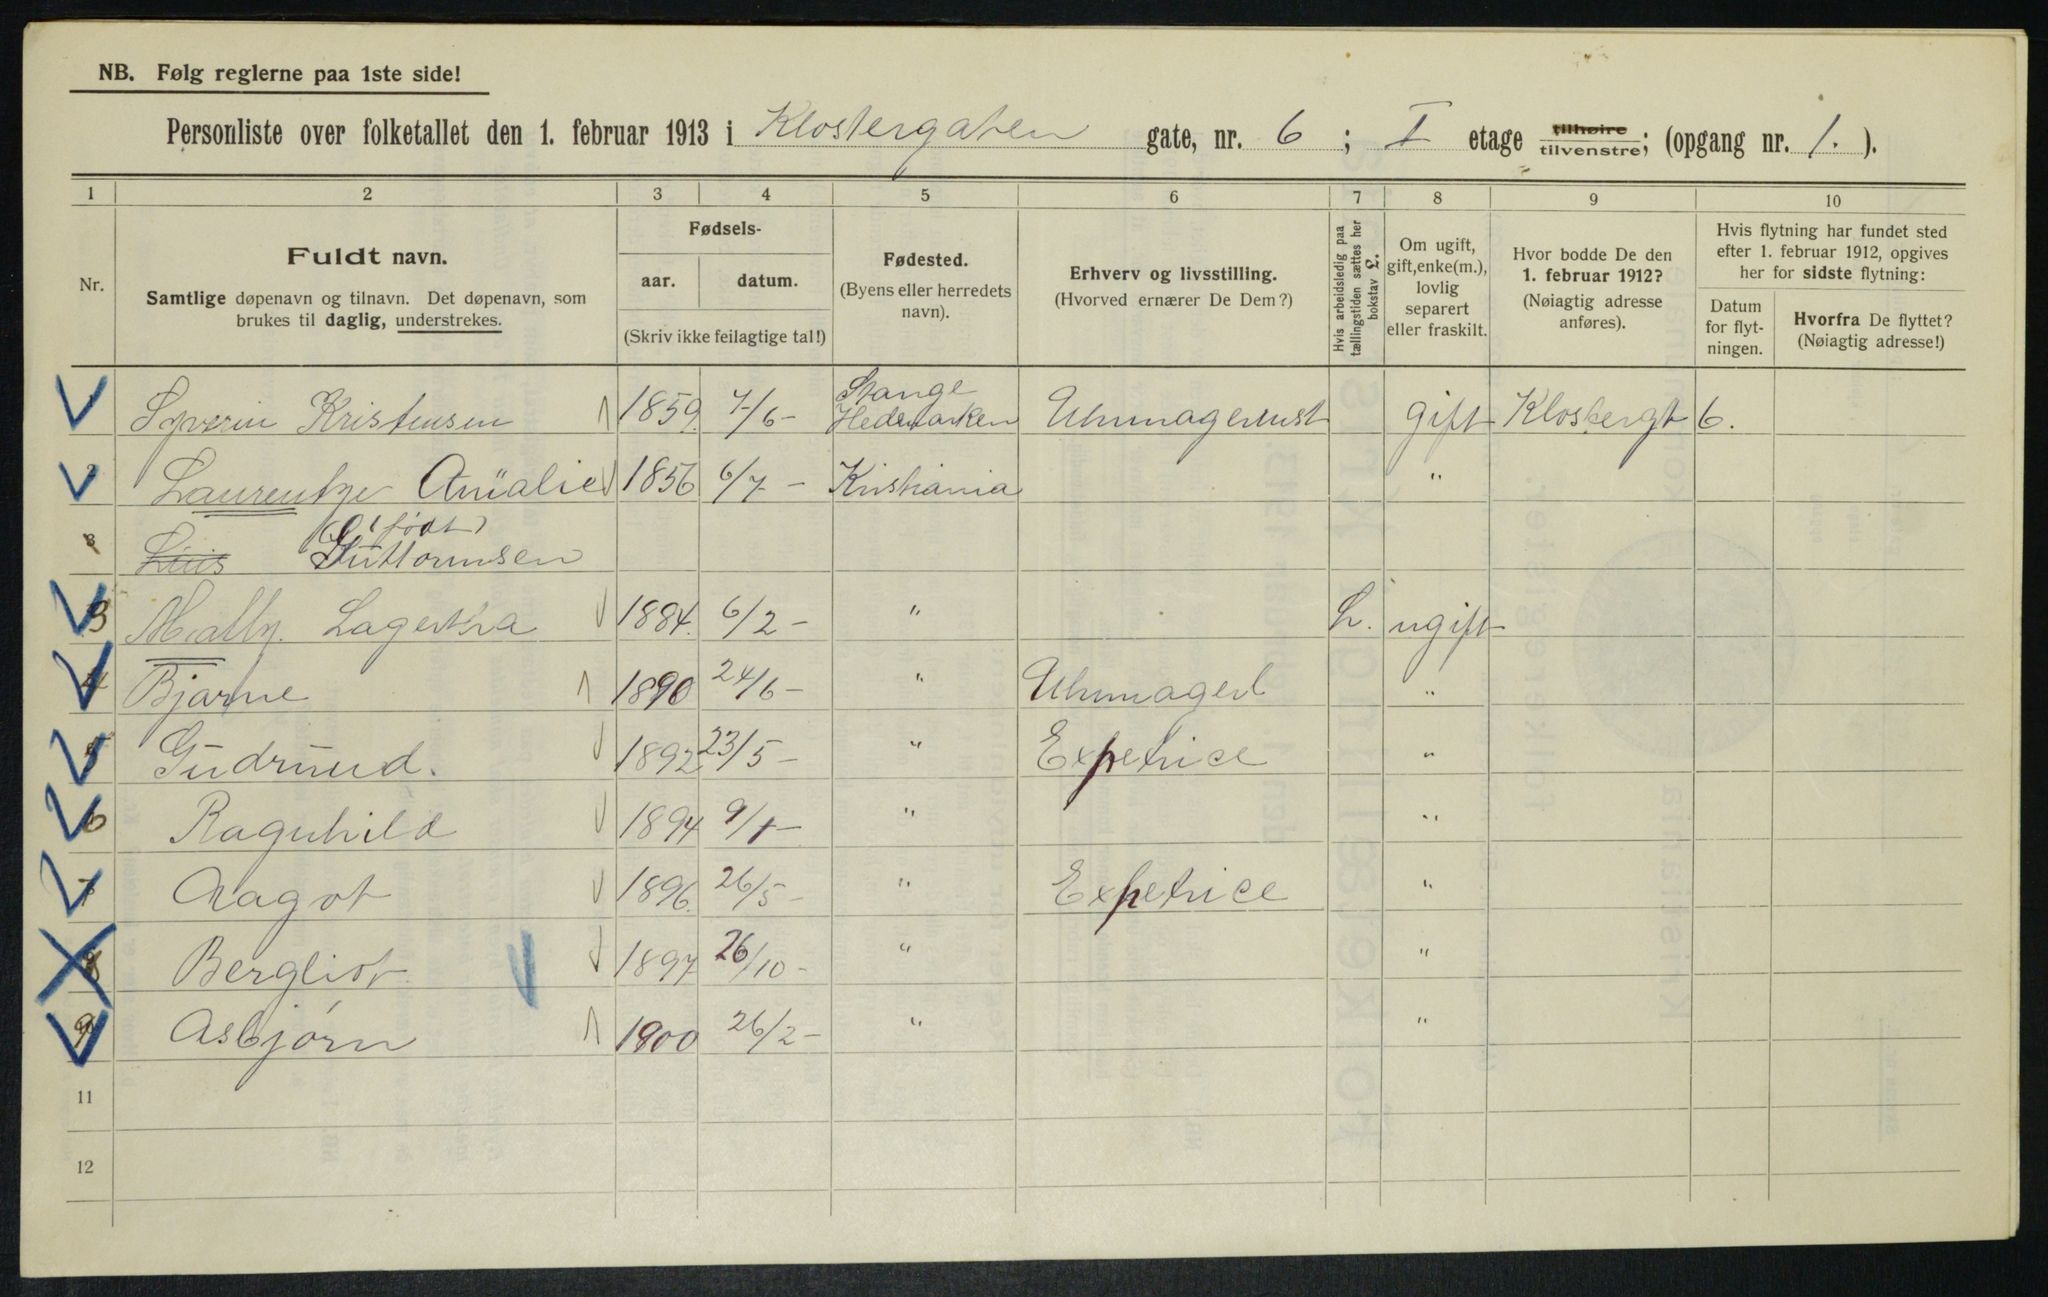 NB. Følg reglerne paa 1ste side!
Personliste over folketallet den 1. februar 1913 i Klostergaten gate, nr. 6 ; I etage tilhøire tilvenstre; (opgang nr. 1. ).
1 2 3 4 5 6 7 8 9 10
Nr.
Fuldt navn.
Samtlige døpenavn og tilnavn. Det døpenavn, som
brukes til daglig, understrekes.
Fødsels-
aar. datum.
(Skriv ikke feilagtige tal!)
Fødested.
(Byens eller herredets
navn).
Erhverv og livsstilling.
(Hvorved ernærer De Dem?)
Hvis arbeidsledig paa
tællingstiden sættes her
bokstav L.
Om ugift,
gift, enke(m.),
lovlig
separert
eller fraskilt.
Hvor bodde De den
1. februar 1912?
(Nøiagtig adresse
anføres).
Hvis flytning har fundet sted
efter 1. februar 1912, opgives
her for sidste flytning:
Datum
for flyt-
ningen.
Hvorfra De flyttet?
(Nøiagtig adresse!)
1 Syverin Kristensen 1859 7/6 - Stange Hedemarken Uhrmagermst gift Klostergt 6.
2 Laurentze Amalie 1856 6/7 - Kristiania "
3 Guttormsen (født)
3 Mally Lagertha 1884. 6/2 - " L. ugift
4 Bjarne 1890 24/6 - " Uhrmagerl "
5 Gudrund. 1892 23/5 - " Expetrice "
6 Ragnhild 1894 9/1 - " "
7 Aagot 1896. 26/5 - " Expetrice "
8 Bergliot 1897 26/10 - " "
9 Asbjørn 1900 26/2 - " "
11
12